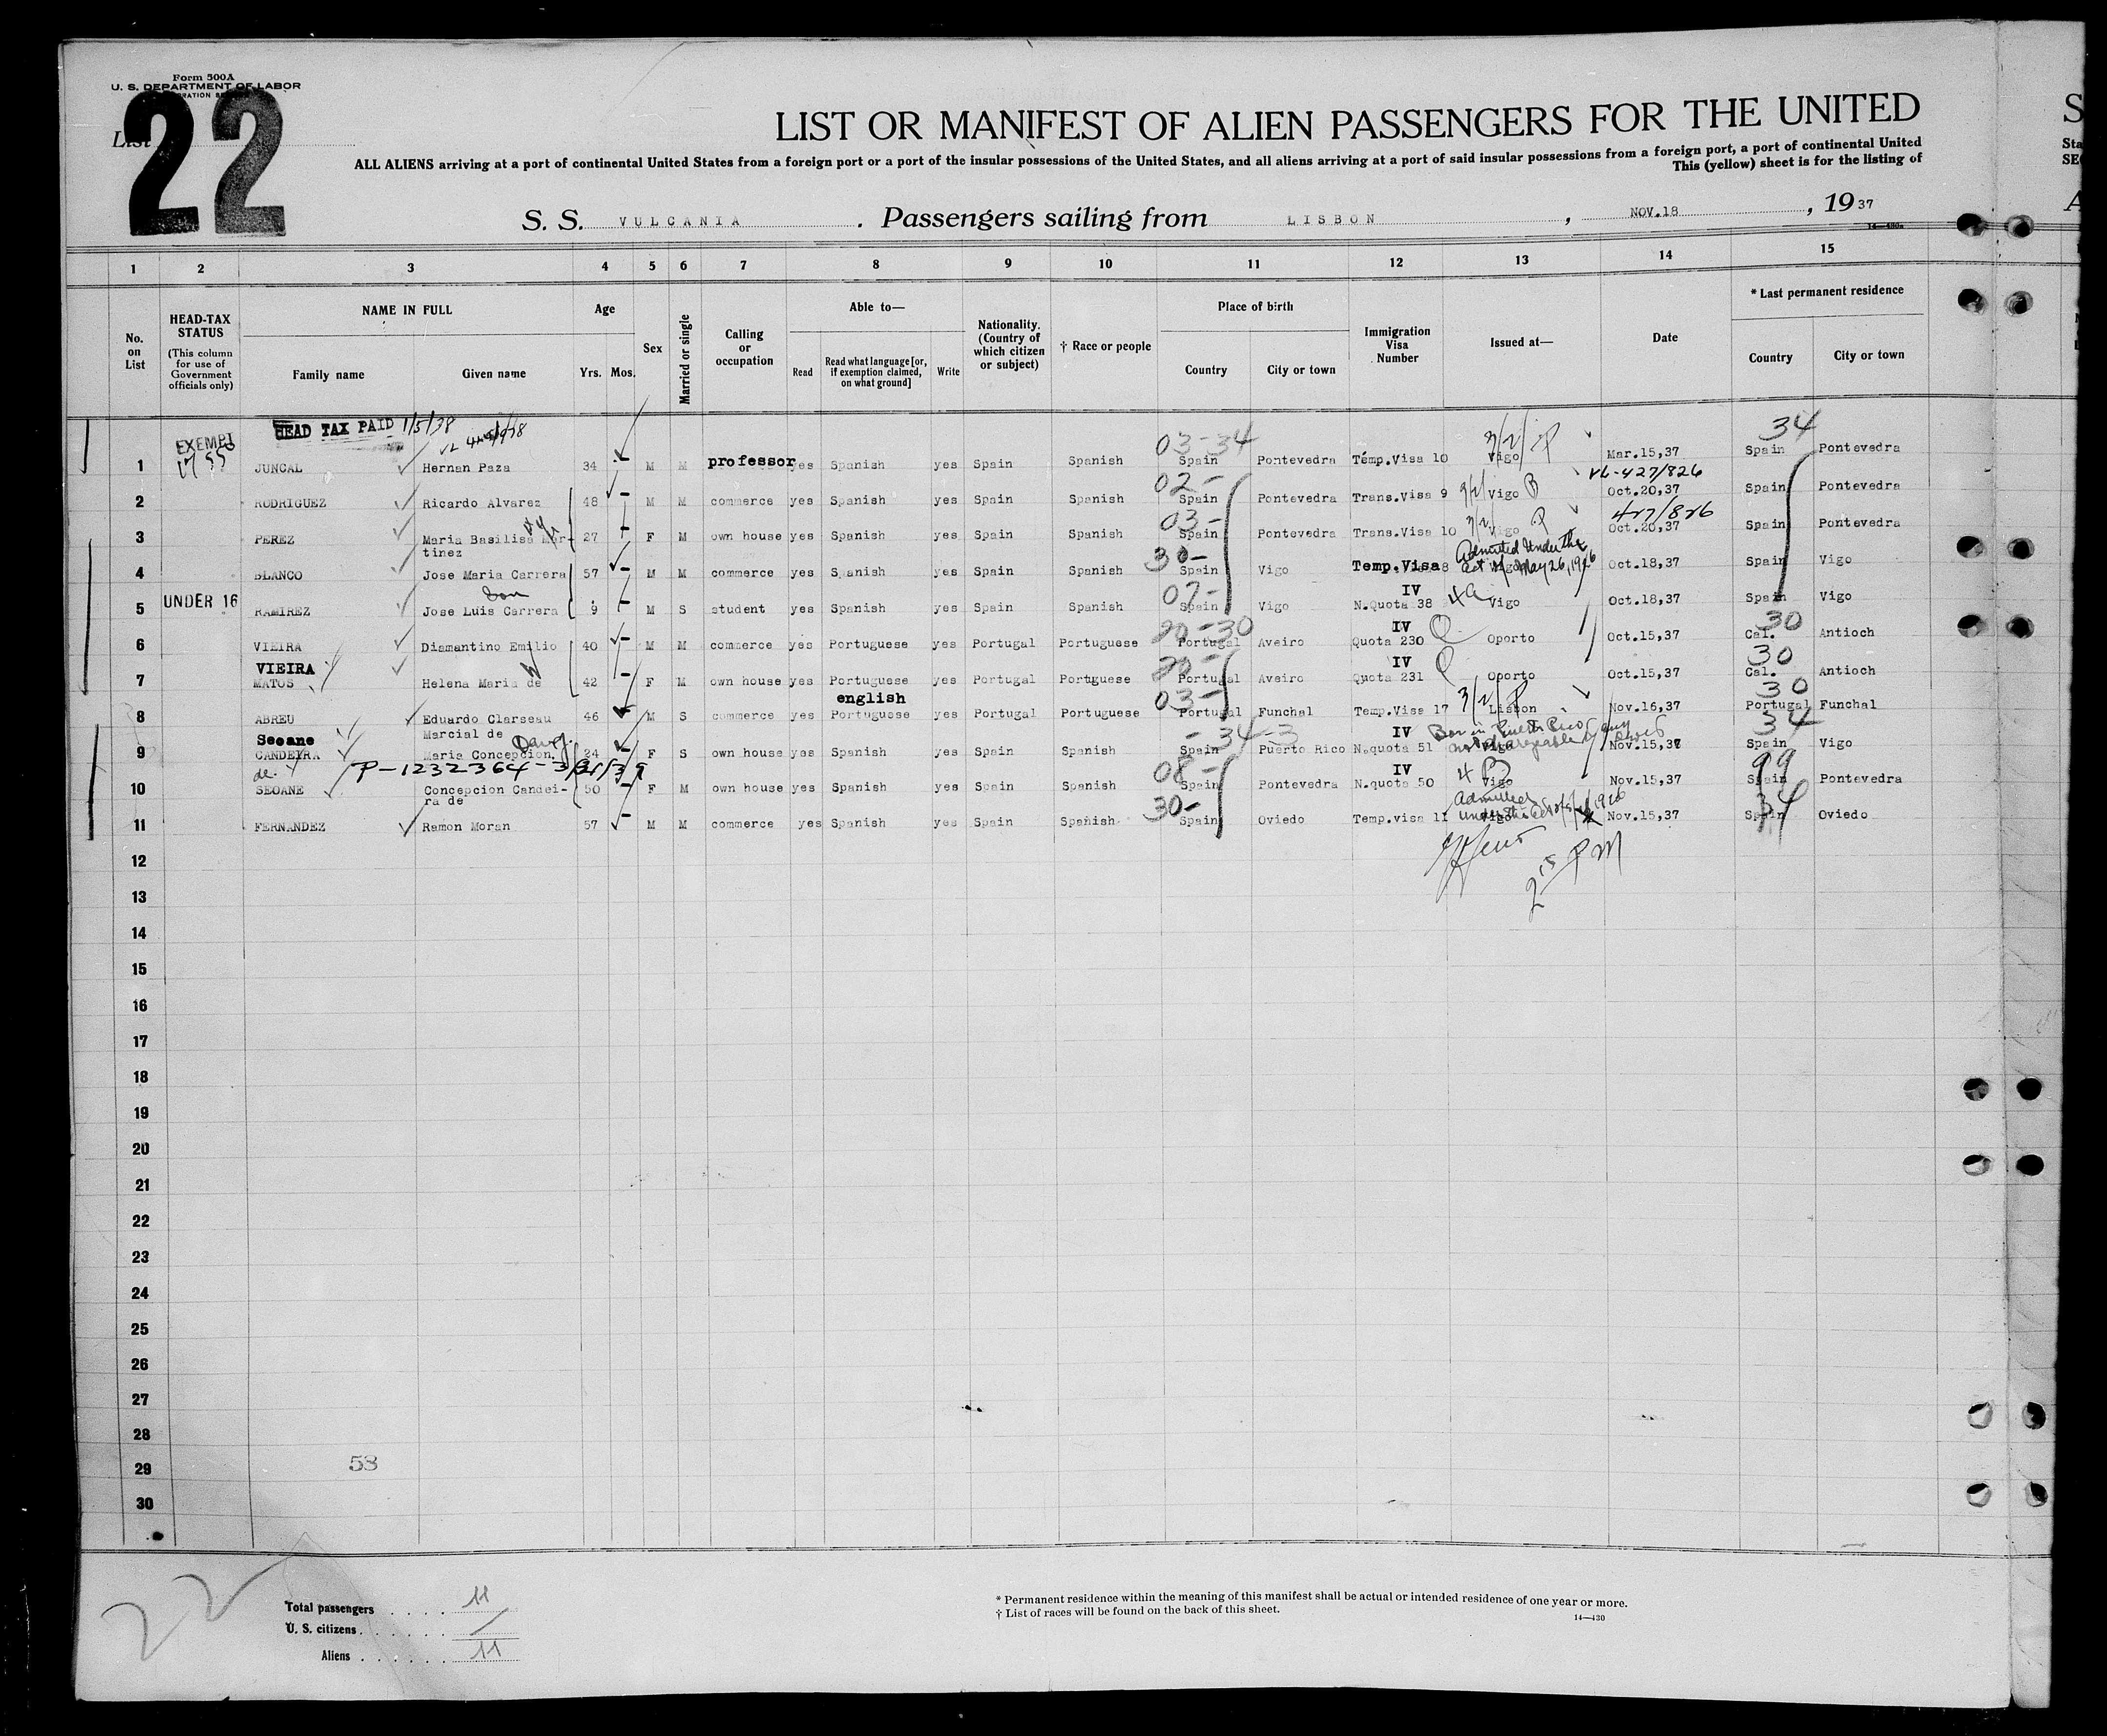 Form 500A
U. S. DEPARTMENT OF LABOR
List 22
LIST OR MANIFEST OF ALIEN PASSENGERS FOR THE UNITED
ALL ALIENS arriving at a port of continental United States from a foreign port or a port of the insular possessions of the United States, and all aliens arriving at a port of said insular possessions from a foreign port, a port of continental United
This (yellow) sheet is for the listing of
S. S. VULCANIA . Passengers sailing from LISBON , NOV.18 , 19 37
1 2 3 4 5 6 7 8 9 10 11 12 13 14 15
No. on List
HEAD-TAX STATUS (This column for use of Government officials only)
NAME IN FULL Family name Given name
Age Yrs. Mos.
Sex
Married or single
Calling or occupation
Able to— Read Read what language [or, if exemption claimed, on what ground] Write
Nationality. (Country of which citizen or subject)
† Race or people
Place of birth Country City or town
Immigration Visa Number
Issued at—
Date
* Last permanent residence Country City or town
HEAD TAX PAID 1/5/38
EXEMPT 03-34 3/2/ P 34
1 JUNCAL Hernan Paza 34 M M professor yes Spanish yes Spain Spanish Spain Pontevedra Temp.Visa 10 Vigo Mar.15,37 Spain Pontevedra
02- VL-427/826
2 RODRIGUEZ Ricardo Alvarez 48 M M commerce yes Spanish yes Spain Spanish Spain Pontevedra Trans.Visa 9 Vigo Oct.20,37 Spain Pontevedra
03- 427/826
3 PEREZ Maria Basilisa Martinez 27 F M own house yes Spanish yes Spain Spanish Spain Pontevedra Trans.Visa 10 Vigo Oct.20,37 Spain Pontevedra
30- Admitted Under The Act of May 26, 1926
4 BLANCO Jose Maria Carrera 57 M M commerce yes Spanish yes Spain Spanish Spain Vigo Temp.Visa 8 Vigo Oct.18,37 Spain Vigo
UNDER 16 son 07- IV
5 RAMIREZ Jose Luis Carrera 9 M S student yes Spanish yes Spain Spanish Spain Vigo N.Quota 38 4a Vigo Oct.18,37 Spain Vigo
20-30 IV Q 30
6 VIEIRA Diamantino Emilio 40 M M commerce yes Portuguese yes Portugal Portuguese Portugal Aveiro Quota 230 Oporto Oct.15,37 Cal. Antioch
VIEIRA W 20- IV Q 30
7 MATOS Helena Maria de 42 F M own house yes Portuguese yes Portugal Portuguese Portugal Aveiro Quota 231 Oporto Oct.15,37 Cal. Antioch
english 03- 3/2/ P 30
8 ABREU Eduardo Clarseau Marcial de 46 M S commerce yes Portuguese yes Portugal Portuguese Portugal Funchal Temp.Visa 17 Lisbon Nov.16,37 Portugal Funchal
Seoane -34-3 IV Born in Puerto Rico not chargeable 34
9 CANDEYRA de Maria Concepcion 24 F S own house yes Spanish yes Spain Spanish Spain Puerto Rico N.quota 51 Vigo Nov.15,37 Spain Vigo
P-1232364- 08- IV 4 99
10 SEOANE Concepcion Candeira de 50 F M own house yes Spanish yes Spain Spanish Spain Pontevedra N.quota 50 Vigo Nov.15,37 Spain Pontevedra
30- Admitted under the act of 1926 34
11 FERNANDEZ Ramon Moran 57 M M commerce yes Spanish yes Spain Spanish Spain Oviedo Temp.visa 11 Vigo Nov.15,37 Spain Oviedo
12
2 15 PM
13
14
15
16
17
18
19
20
21
22
23
24
25
26
27
28
29 53
30
22
Total passengers . . . . 11
U. S. citizens . . . . . . /
Aliens . . . . . . 11
* Permanent residence within the meaning of this manifest shall be actual or intended residence of one year or more.
† List of races will be found on the back of this sheet.
14—430